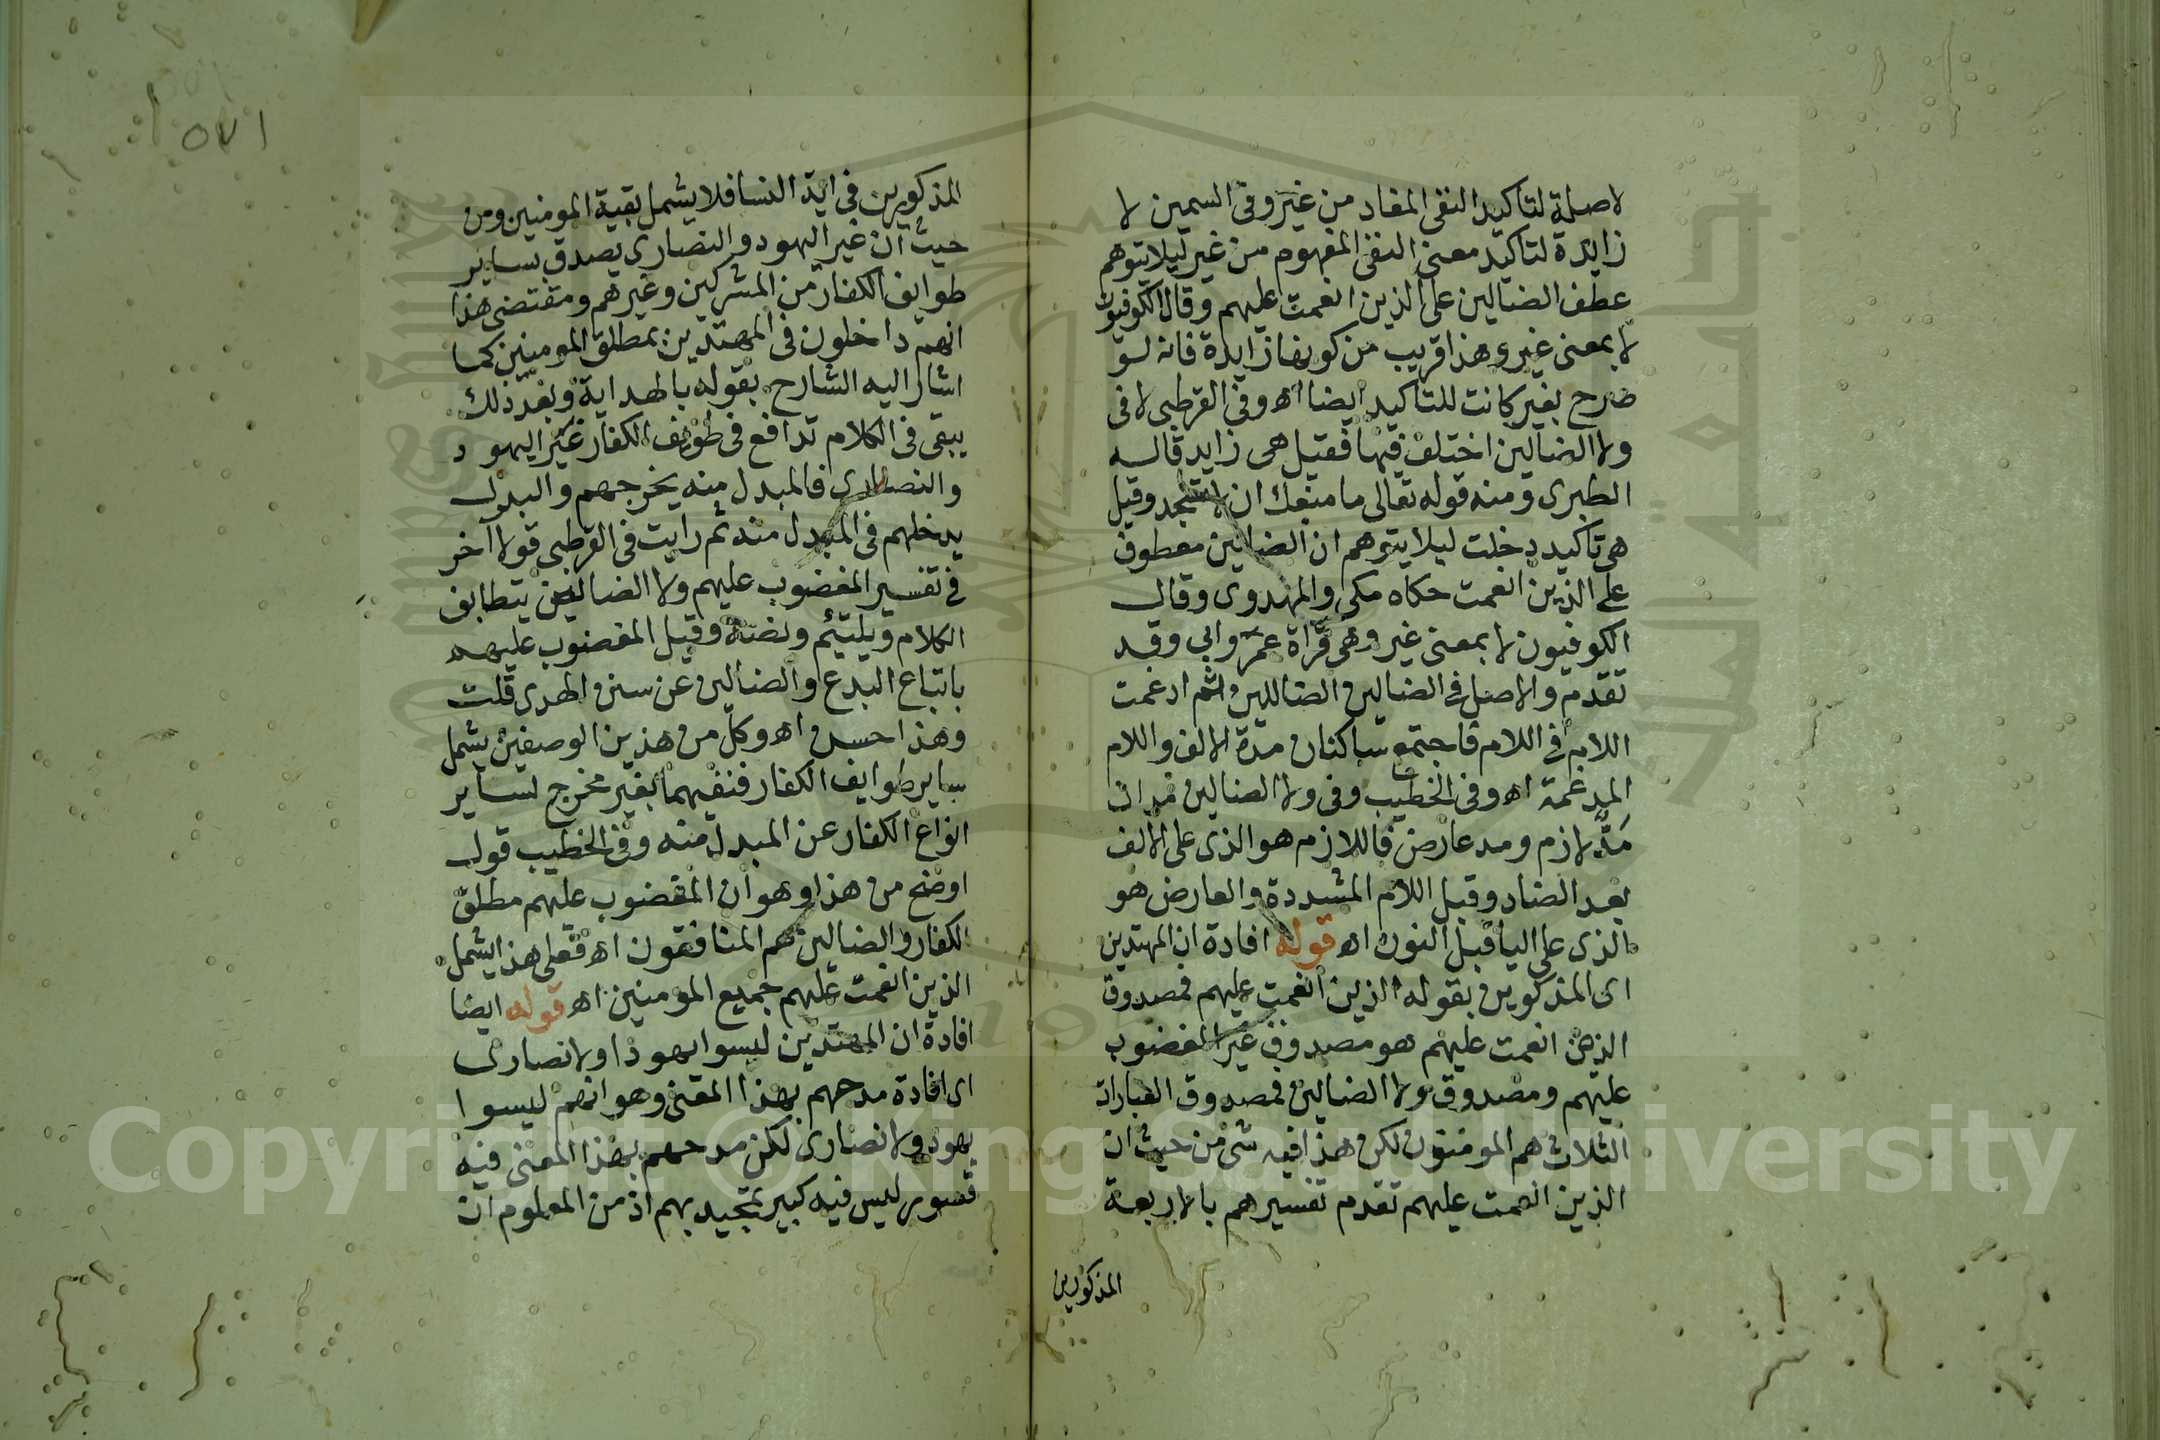 لا صلة لتاكيد النفى المفاد من غير وفى السمين لا
زايدة لتاكيد معنى النفى المفهوم من غير ليلا يتوهم
عطف الضالين على الذين انعمت عليهم وقال الكوفيون
لا بمعنى غير وهذا قريب من كونها زايدة فانه لو
صرح بغير كانت للتاكيد ايضا اه وفى القرطبى لا فى
ولا الضالين اختلف فيها فقيل هى زايد قاله
الطبرى ومنه قوله تعالى ما منعك ان لا تسجد وقيل
هى تاكيد دخلت ليلا يتوهم ان الضالين معطوف
على الذين انعمت حكاه مكى والمهدوى وقال
الكوفيون لا بمعنى غير وهى قراة عمر وابى وقد
تقدم والاصل فى الضالين الضاللين ثم ادغمت
اللام فى اللام فاجتمع ساكنان مدة الالف واللام
المدغمة اه وفى الخطيب وفى ولا الضالين مدان
مد لازم ومد عارض فاللازم هو الذى على الالف
بعد الضاد وقبل اللام المشددة والعارض هو
الذى على اليا قبل النون اه قوله افادة ان المهتدين
اى المذكورين بقوله الذين انعمت عليهم فمصدوق
الذين انعمت عليهم هو مصدوق غير المغضوب
عليهم ومصدوق ولا الضالين فمصدوق العبارات
الثلاث هم المومنون لكن هذا فيه شى من حيث ان
الذين انعمت عليهم تقدم تفسيرهم بالاربعة
المذكورين
١٧٥
المذكورين فى اية النسا فلا يشمل بقية المومنين ومن
حيث ان غير اليهود والنصارى يصدق بساير
طوايف الكفار من المشركين وغيرهم ومقتضى هذا
انهم داخلون فى المهتدين بمطلق المومنين كما
اشار اليه الشارح بقوله بالهداية وبعد ذلك
يبقى فى الكلام تدافع فى طوايف الكفار غير اليهود
والنصارى فالمبدل منه يخرجهم والبدل
يدخلهم فى المبدل منه ثم رايت فى القرطبى قولا اخر
فى تفسير المغضوب عليهم ولا الضالين يتطابق
الكلام ويلتئم ونصه وقيل المغضوب عليهم
باتباع البدع والضالين عن سنن الهدى قلت
وهذا حسن اه وكل من هذين الوصفين يشمل
ساير طوايف الكفار فنفيهما بغير مخرج لساير
انواع الكفار عن المبدل منه وفى الخطيب قول
اوضح من هذا وهو ان المغضوب عليهم مطلق
الكفار والضالين هم المنافقون اه فعلى هذا يشمل
الذين انعمت عليهم جميع المومنين اه قوله ايضا
افادة ان المهتدين ليسوا يهودا ولا نصارى
اى افادة مدحهم بهذا المعنى وهو انهم ليسوا
يهود ولا نصارى لكن مدحهم بهذا المعنى فيه
قصور ليس فيه كبير تمجيد بهم اذ من المعلوم ان
Copyright © King Saud University